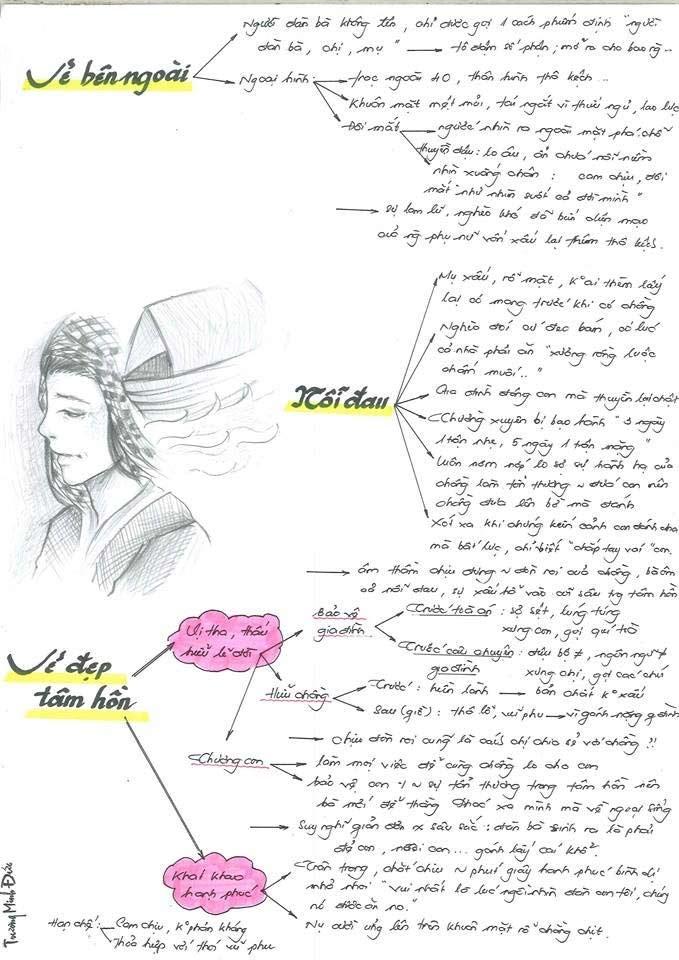 Vẻ bên ngoài
Người đàn bà không tên, chỉ được gọi 1 cách phiếm định "người
đàn bà, chị, mụ" → tô đậm số phận; mở ra cho bao ng~..
Ngoại hình: → trạc ngoài 40, thân hình thô kệch..
Khuôn mặt mệt mỏi, tái ngắt vì thức ngủ, lao lực
Đôi mắt → ngước nhìn ra ngoài mặt phá, chỗ
thuyền đậu: lo âu, ẩn chứa nỗi niềm
nhìn xuống chân: cam chịu, đôi
mắt "như nhìn suốt cả đời mình"
→ sự lam lũ, nghèo khó đã
của ng phụ nữ vốn xấu lại thêm thô kệch.
Nỗi đau
Mụ xấu, rỗ mặt, k° ai thèm lấy
lại có mang trước khi có chồng
Nghèo đói cứ đeo bám, có lúc
cả nhà phải ăn "xương rồng luộc
chấm muối.."
Gia đình đông con mà thuyền lại chật
Thường xuyên bị bạo hành "3 ngày
1 trận nhẹ, 5 ngày 1 trận nặng"
luôn nơm nớp lo sợ sự hành hạ của
chồng làm tổn thương ~ đứa con nên
chồng đưa lên bờ mà đánh
Xót xa khi chứng kiến cảnh con đánh cha
mà bất lực, chỉ biết "chắp tay vái" con.
→ âm thầm chịu đựng ~ đòn roi của chồng, bà ôm
cả nỗi đau, sự xấu hổ vào cõi sâu trg tâm hồn
Vẻ đẹp
tâm hồn
Vị tha, thấu
hiểu lẽ đời
Bảo vệ
gia đình
Trước toà án: sợ sệt, lúng túng
xưng con, gọi quí toà
Trước câu chuyện: điệu bộ ≠, ngôn ngữ ≠
gia đình xưng chị, gọi các chú
Hiểu chồng
Trước: hiền lành → bản chất k° xấu
Sau (giờ): thô lỗ, vũ phu → vì gánh nặng gđình
→ Chịu đòn roi cũng là cách chị chia sẻ với chồng ?!
Thương con
làm mọi việc để cùng chồng lo cho con
bảo vệ con ~ sự tổn thương trong tâm hồn nên
bà mới để thằng Phác xa mình mà về ngoại sống
→ Suy nghĩ giản đơn x sâu sắc: đàn bà sinh ra là phải
đẻ con, nuôi con... gánh lấy cái khổ.
Khát khao
hạnh phúc
Trân trọng, chắt chiu ~ phút giây hạnh phúc bình dị
nhỏ nhoi "vui nhất là lúc ngồi nhìn đàn con tôi, chúng
nó được ăn no."
Nụ cười ửng lên trên khuôn mặt rỗ chằng chịt.
Hạn chế: Cam chịu, k° phản kháng
Thỏa hiệp với thói vũ phu
Trương Minh Đức